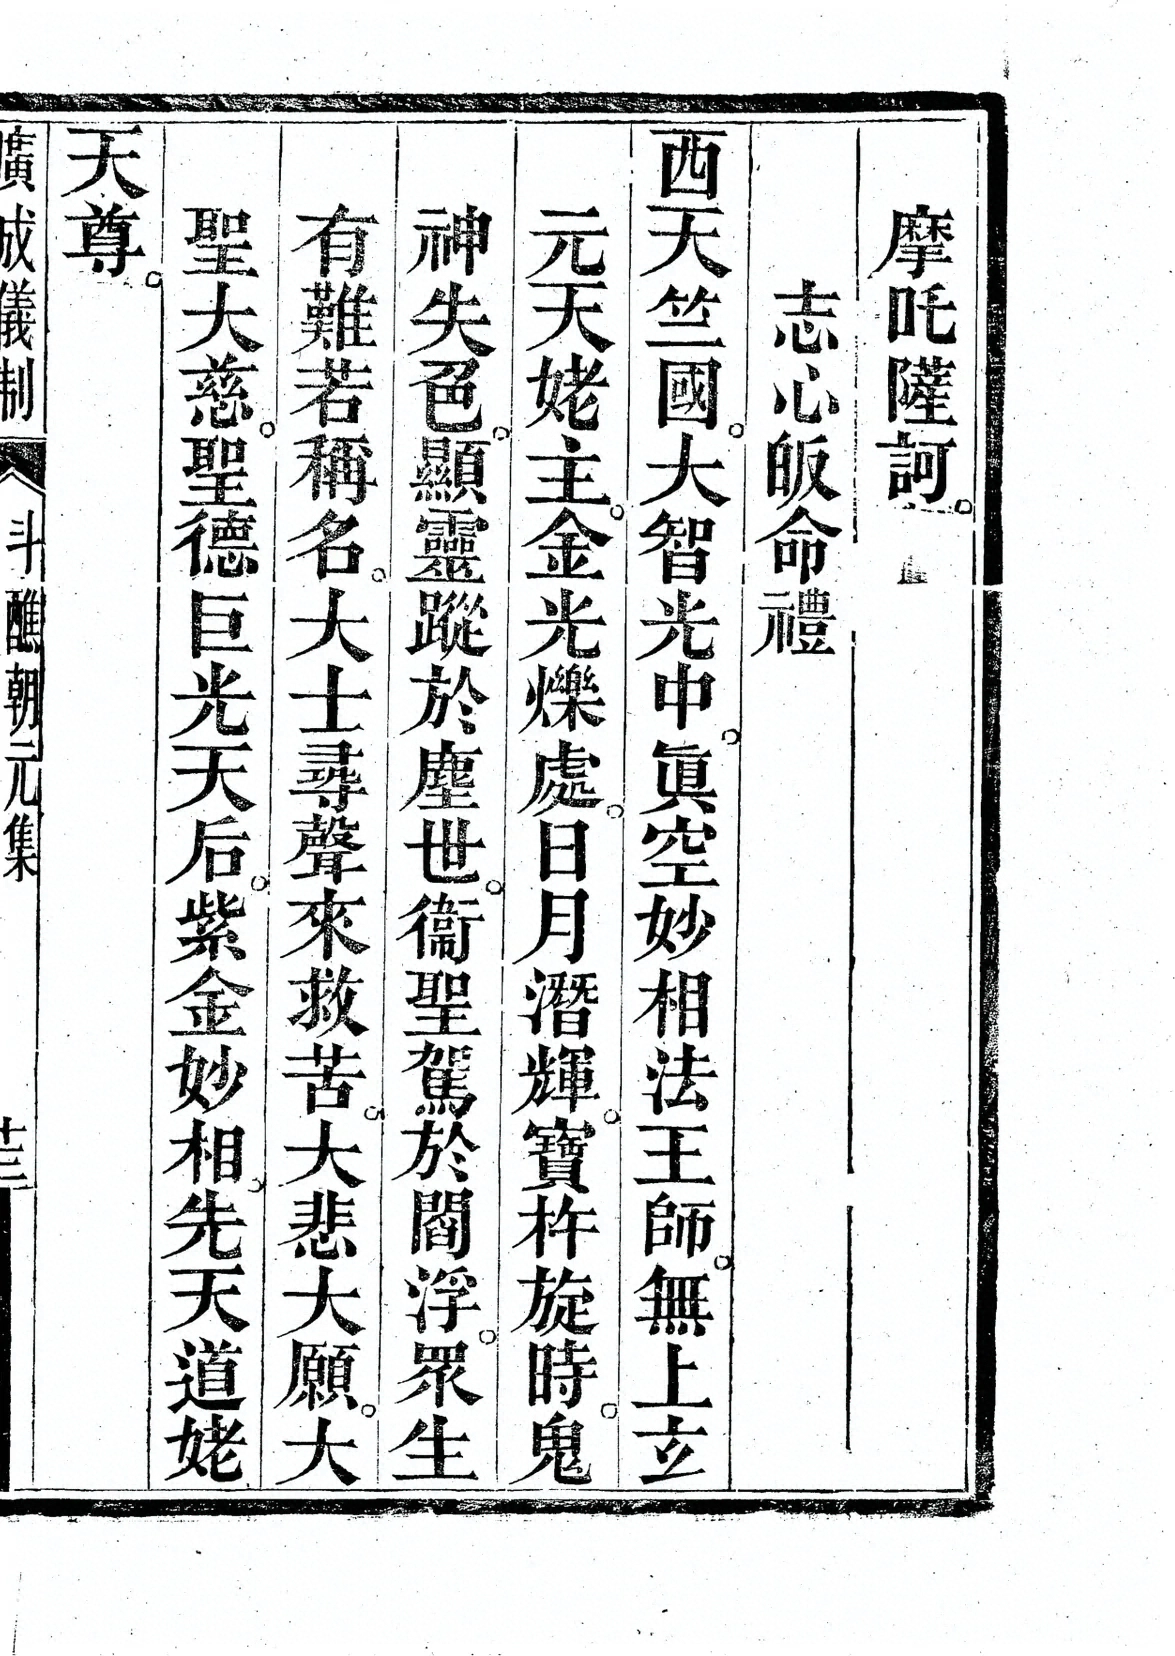 摩吒薩訶。
志心皈命禮
西天竺國。大智光中。眞空妙相法王師。無上玄
元天姥主。金光爍處。日月潛輝。寶杵旋時。鬼
神失色。顯靈蹤於塵世。衞聖駕於閻浮。眾生
有難若稱名。大士尋聲來救苦。大悲大願。大
聖大慈。聖德巨光天后。紫金妙相。先天道姥
天尊。
廣成儀制 斗醮朝元集 十三